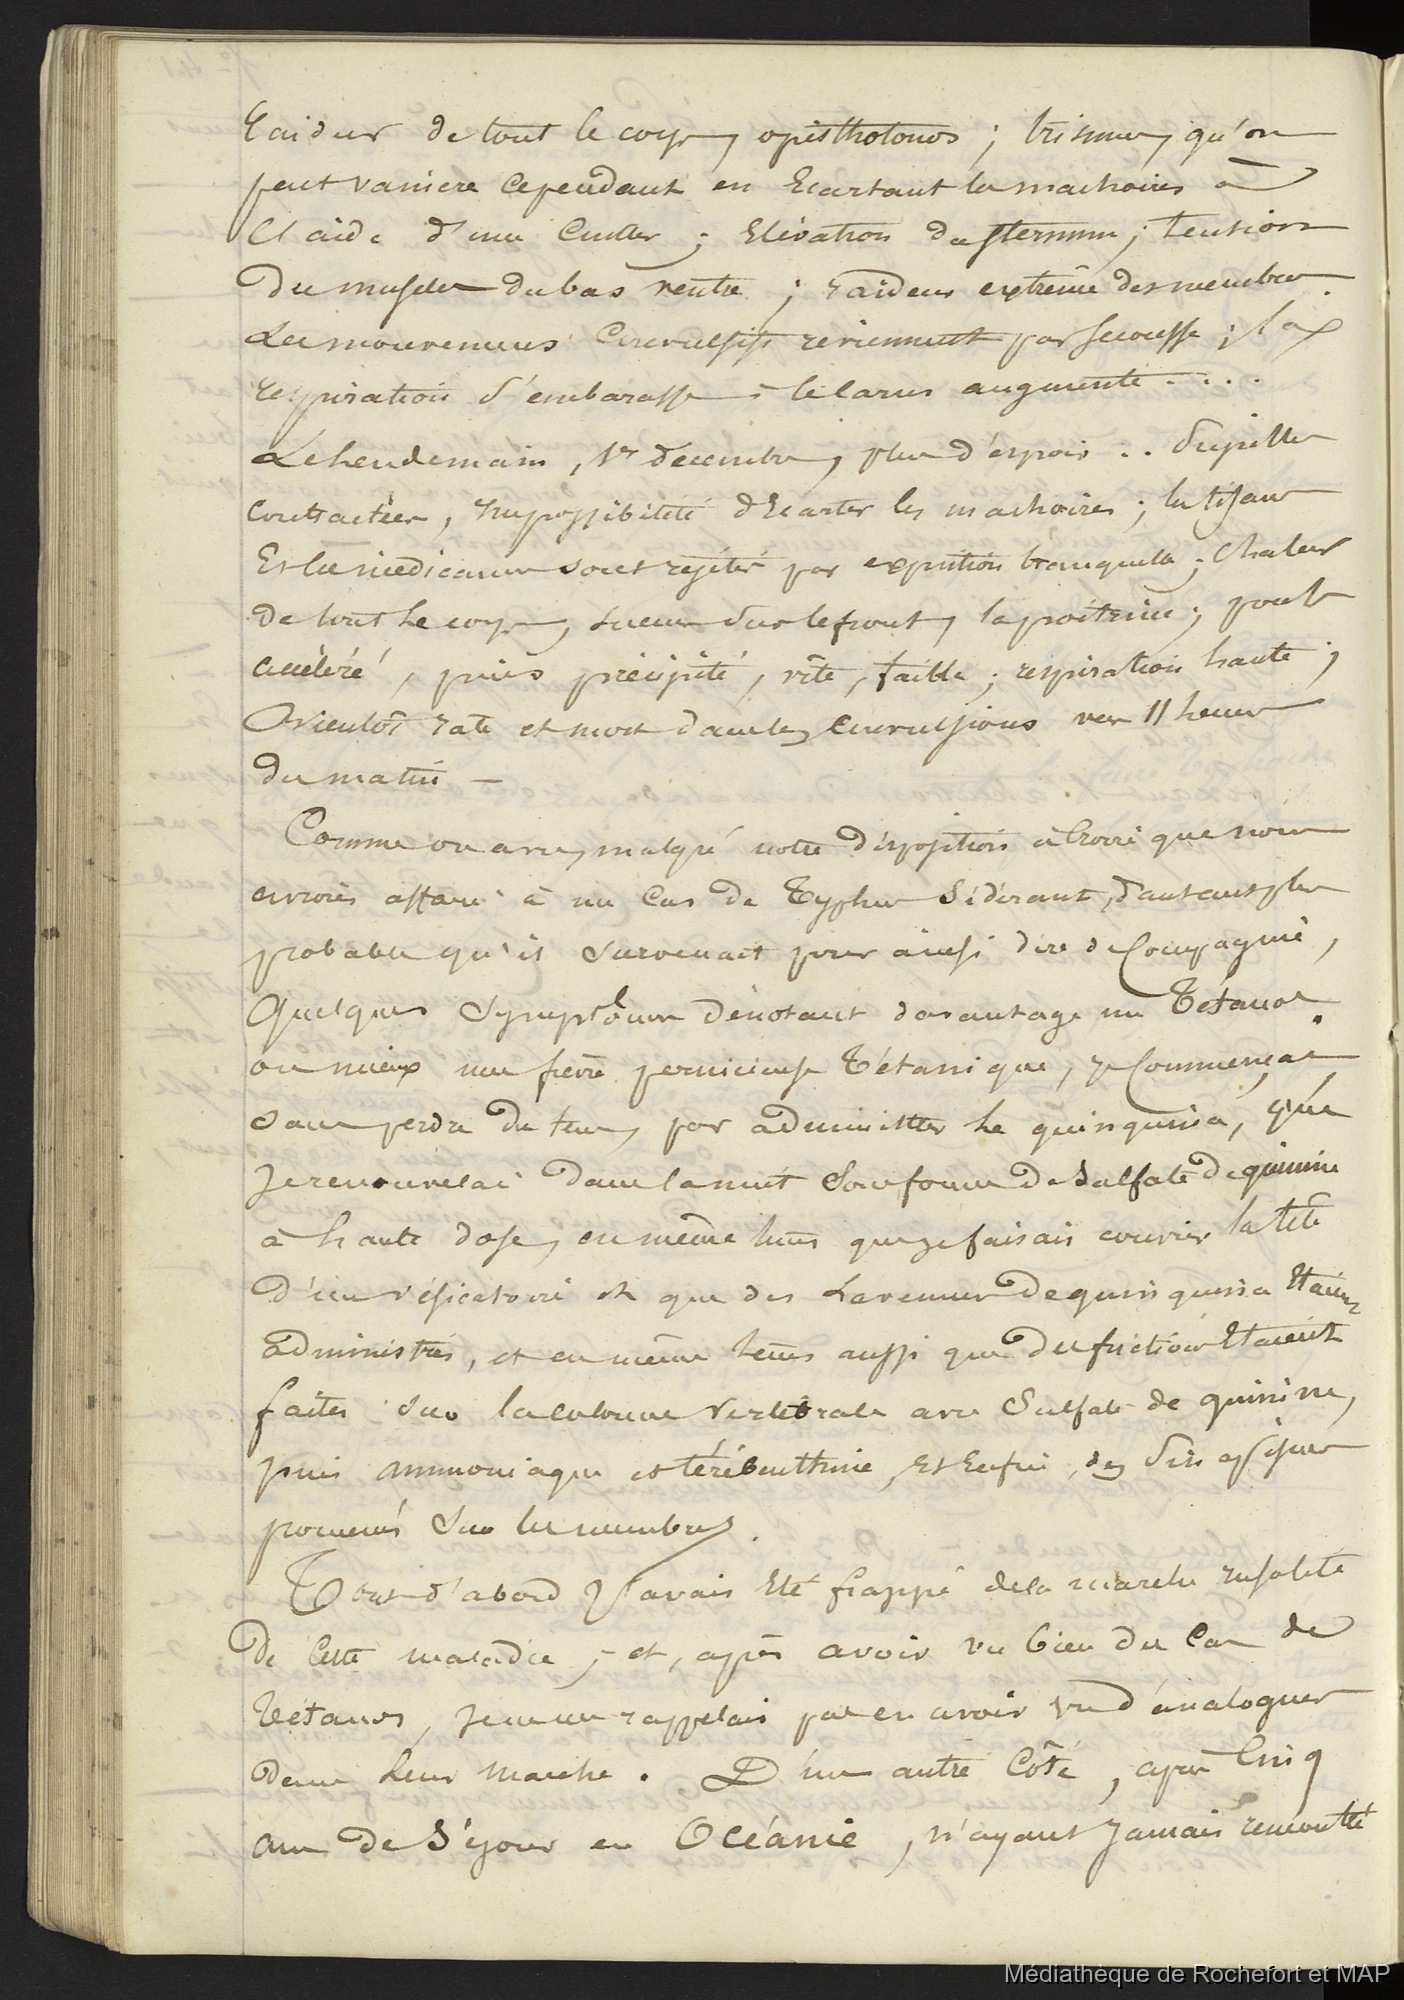 raideur de tout le corps, opisthotonos ; trismus, qu'on
peut vaincre cependant en Ecartant les machoires à
l'aide d'une Cuiller ; Elévation du sternum ; tension
Des muscles du bas ventre ; raideur extrême des membres.
Les mouvemens Convulsifs reviennent par secousses ; la
respiration s'embarasse - le larus augmente....
Le lendemain, 1er décembre, plus d'espoir .. pupilles
contractées, Impossibilité d'Ecarter les machoires ; la tisane
Et les médicamens sont rejetés par expuition ; Chaleur
de tout le corps, sueur sur le front, la poitrine ; pouls
accéléré, puis précipité, vîte, faible ; respiration haute ;
Bientôt rale et mort dans les Convulsions vers 11 heures
du matin —
Comme on a vu, malgré notre disposition à Croire que nous
avions affaire à un Cas de Typhus Sidérant, d'autant plus
probable qu'il survenait pour ainsi dire de Compagnie,
Quelques symptômes dénotant davantage un Tétanos
ou mieux une fièvre pernicieuse Tétanique, je Commençai
sans perdre de tems, par administrer le quinquina, que
Je renouvelai dans la nuit Sous forme De Sulfate De quinine
à haute dose, en même tems que je faisais couvrir la tête
D'un vésicatoire et que des Lavemens De quinquina Etaient
administrés, et en même tems aussi que Des frictions Etaient
faites sur la colonne Vertébrale avec Sulfate de quinine,
puis ammoniaque et térébenthine, Et Enfin, des Sinapismes
promenés Sur les membres.
Tout d'abord J'avais Eté frappé de la marche Insolite
De Cette maladie ; et, après avoir vu bien des Cas de
Tétanos, Je ne me rappelais pas en avoir vu d'analogues
dans leur marche. D'un autre Côté, après Cinq
ans De Séjour en Océanie, n'ayant Jamais rencontré
Médiathèque de Rochefort et MAP